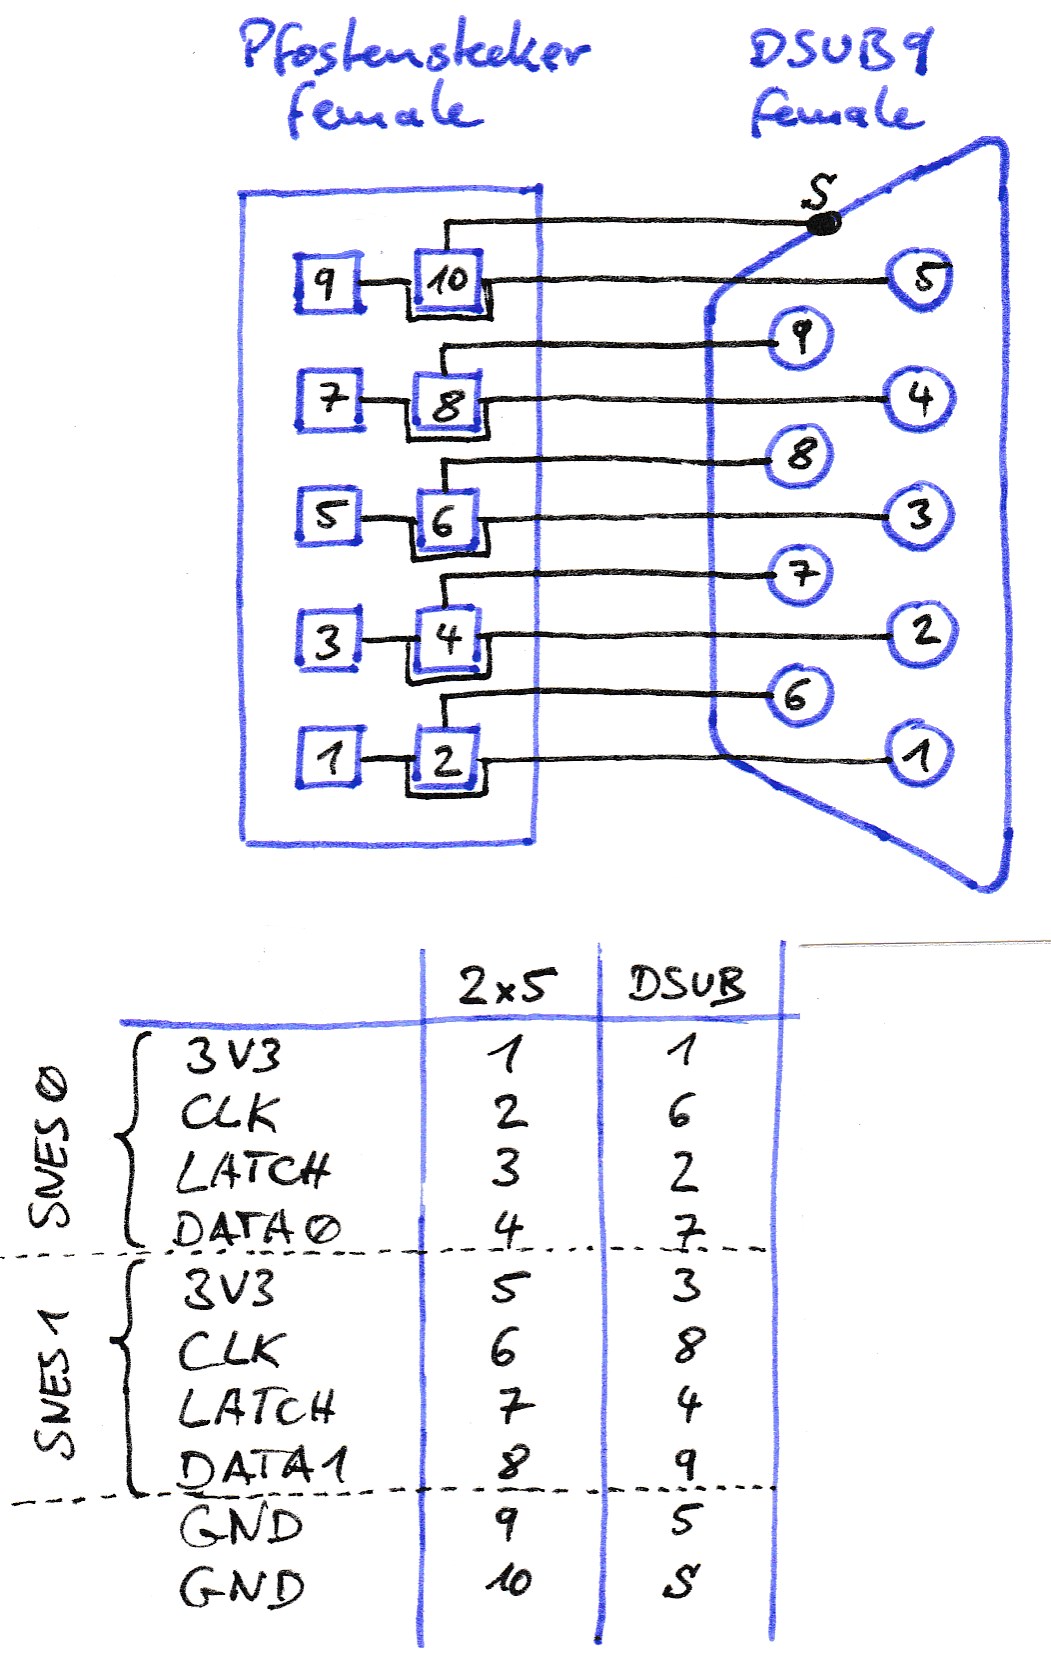 Pfostenstecker DSUB9
female female
S
9 10 5
9
7 8 4
8
5 6 3
7
3 4 2
6
1 2 1
2x5 DSUB
SNES0
3V3 1 1
CLK 2 6
LATCH 3 2
DATA0 4 7
SNES1
3V3 5 3
CLK 6 8
LATCH 7 4
DATA1 8 9
GND 9 5
GND 10 S